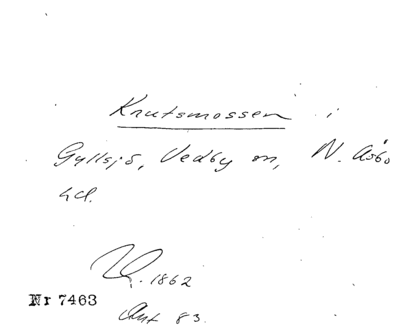 Knutsmossen i
Gyllsjö, Vedby sn, N. Åsbo
hd.
1862
Nr 7463
Ant 83.